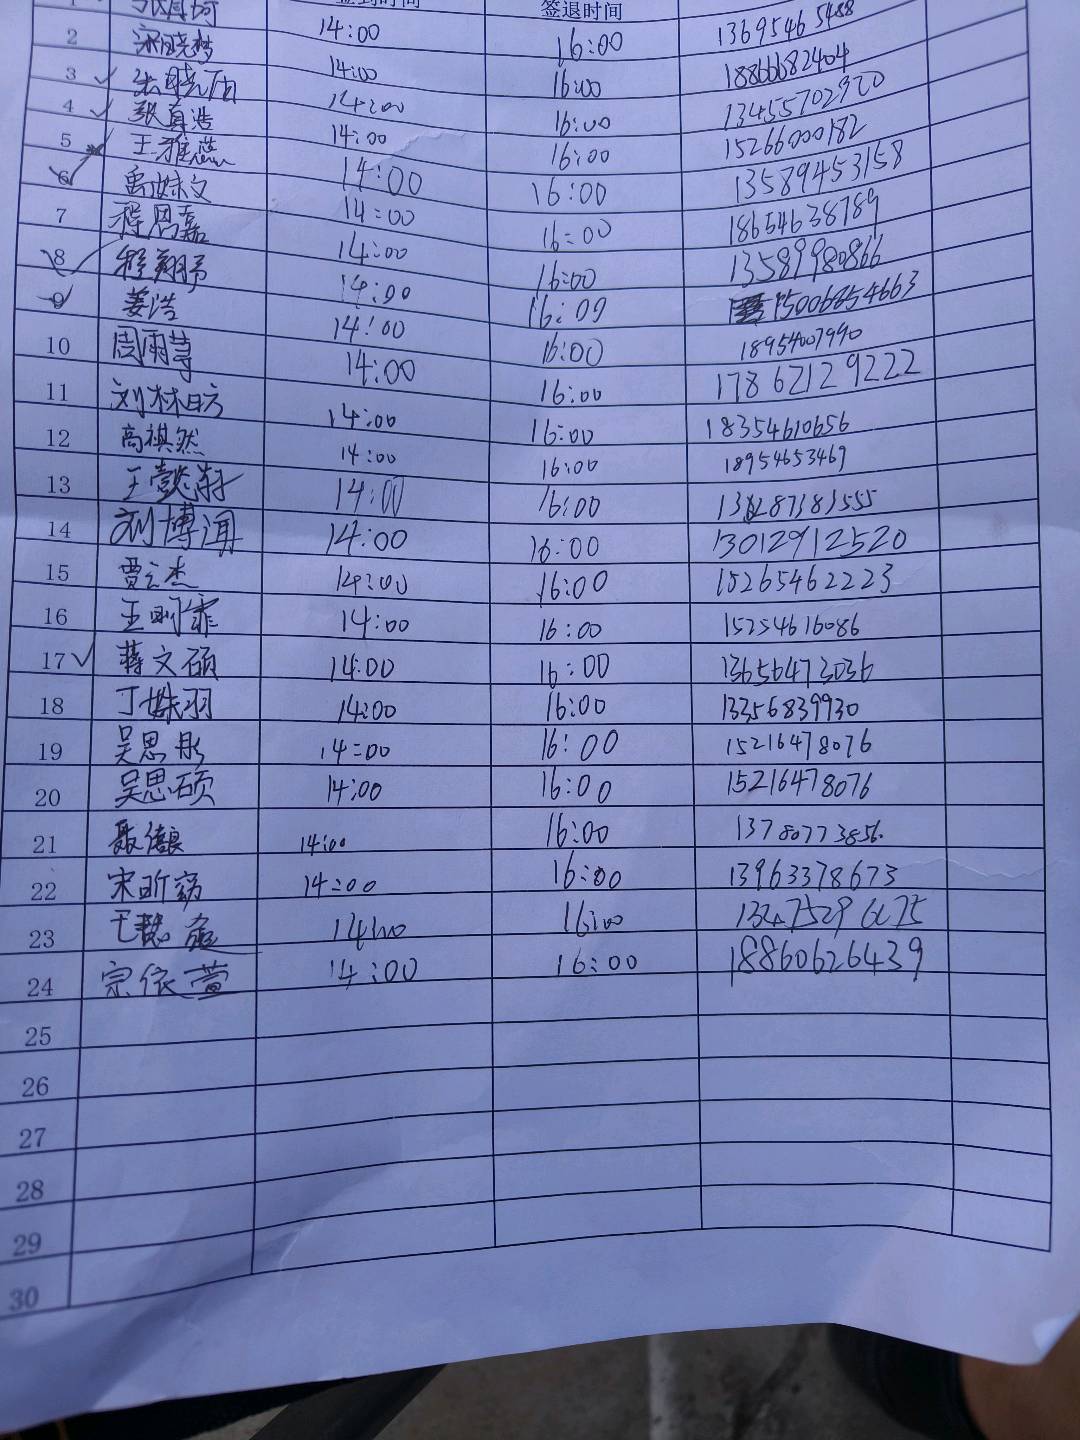 签到时间 签退时间
1
2 宋晓梦 14:00 16:00 13695465488
3 14:00 16:00 18866682404
4 张真浩 14:00 16:00 13455702920
5 王雅蕊 14:00 16:00 15266000182
6 14:00 16:00 13589453158
7 程思嘉 14:00 16:00 18654638789
8 程翔予 14:00 16:00 13589980866
9 姜浩 14:00 16:00 15006854663
10 周雨荨 14:00 16:00 18954007990
11 刘林昉 14:00 16:00 17862129222
12 高祺然 14:00 16:00 18354610656
13 王懿轩 14:00 16:00 18954653469
14 刘博闻 14:00 16:00
15 贾云杰 14:00 16:00 13012912520
16 14:00 16:00 15265462223
17 蒋文硕 14:00 16:00 15254616086
18 丁姝羽 14:00 16:00 13656473036
19 吴思彤 14:00 16:00 13356839930
20 吴思硕 14:00 16:00 15216478076
21 14:00 16:00 15216478076
22 宋昕窈 14:00 16:00 13780773856
23 14:00 16:00 13963378673
24 宗依萱 14:00 16:00 18860626439
25
26
27
28
29
30